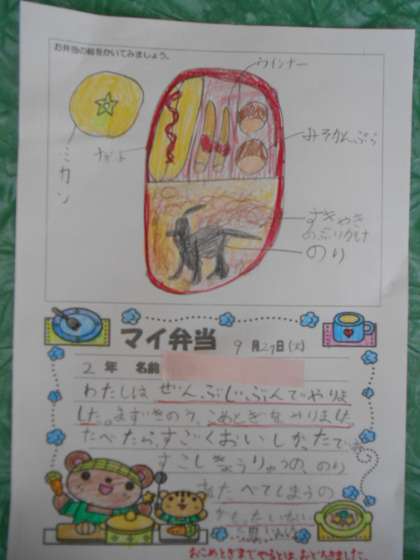 お弁当の絵をかいてみましょう。
ウインナー
みそかんぷら
ミカン
すきやき
のふりかけ
のり
マイ弁当
9月27日(火)
2年 名前
わたしは ぜんぶじぶんでやりま
した。まずきのう、こめとぎをやりました。
たべたら、すごくおいしかったで
すこしきょうりゅうの、のり
をたべてしまうの
がもったいない
と思いました。
おこめとぎまでやるとは、おどろきました。